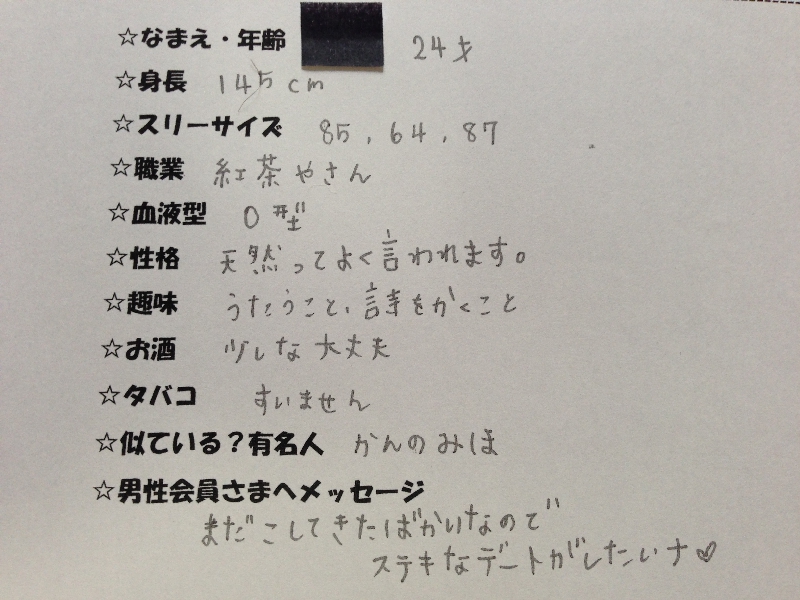 ☆なまえ・年齢 24才
☆身長 145cm
☆スリーサイズ 85,64,87
☆職業 紅茶やさん
☆血液型 O型
☆性格 天然ってよく言われます。
☆趣味 うたうこと、詩をかくこと
☆お酒 少しなら大丈夫
☆タバコ すいません
☆似ている?有名人 かんのみほ
☆男性会員さまへメッセージ
まだこしてきたばかりなので
ステキなデートがしたいナ♡